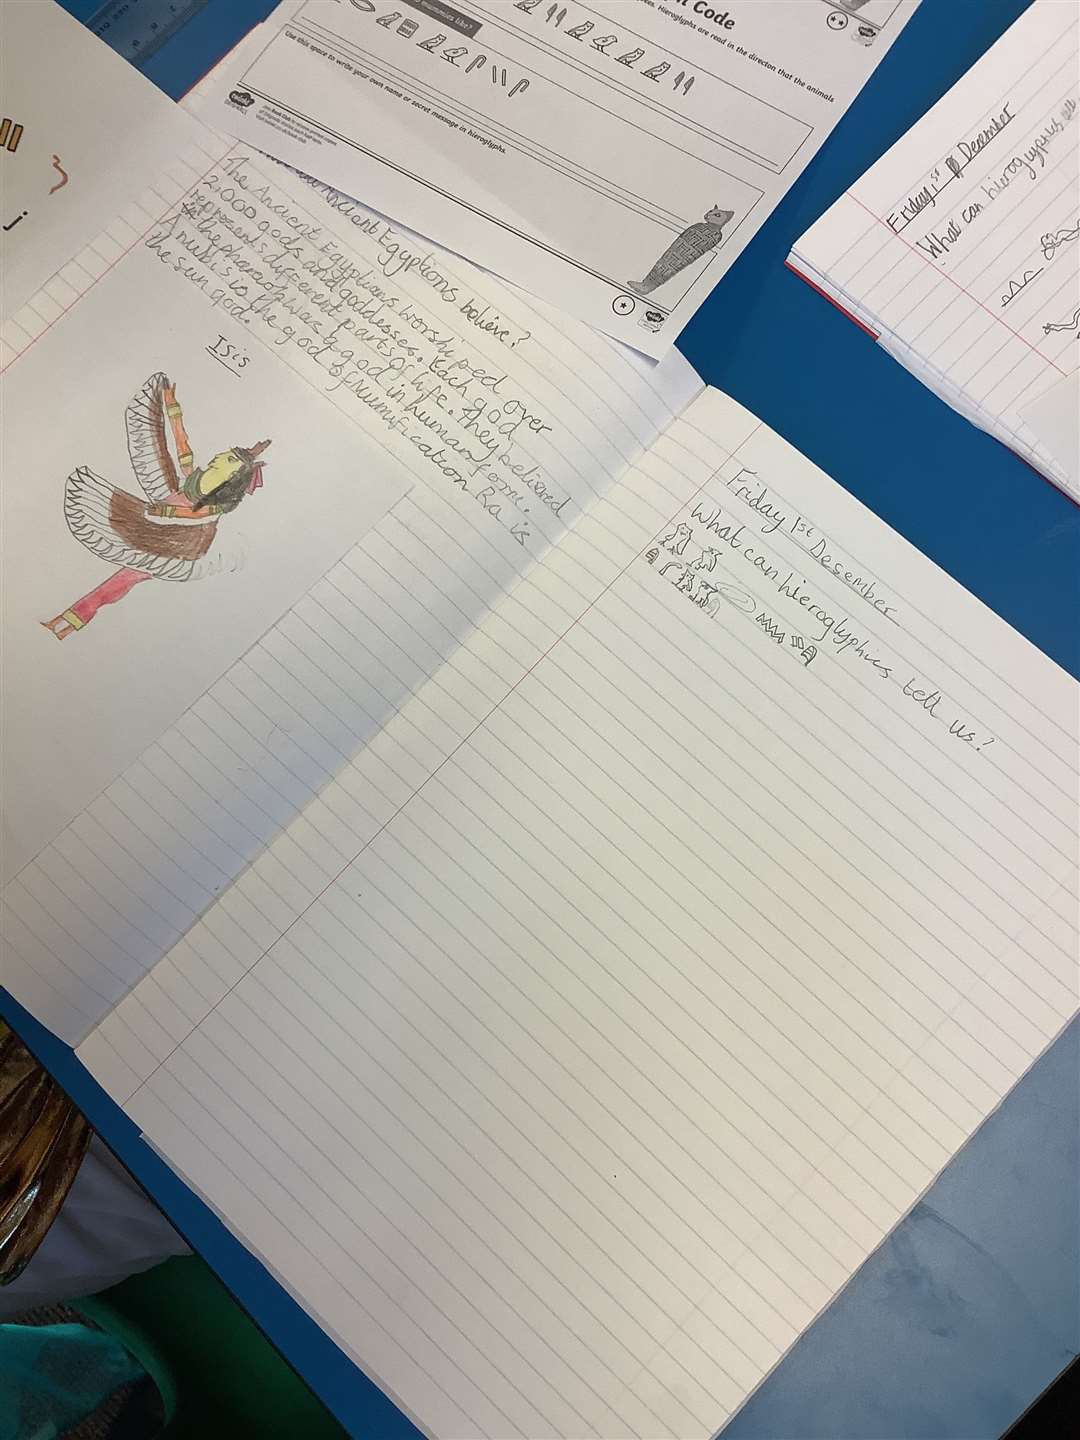 Code
Hieroglyphs are read in the direction that the animals
mummies like?
Use this space to write your own name or secret message in hieroglyphs.
j
Ancient Egyptians believe?
The Ancient Egyptians worshipped over
2,000 gods and goddesses. Each god
represents different parts of life. They beleived
the pharaoh was a god in human forme.
Anubis is the god of Mumification Ra is
the sun god.
Isis
Friday 1st Desember
What can hieroglyphics tell us?
Friday 1st December
What can hieroglyphics